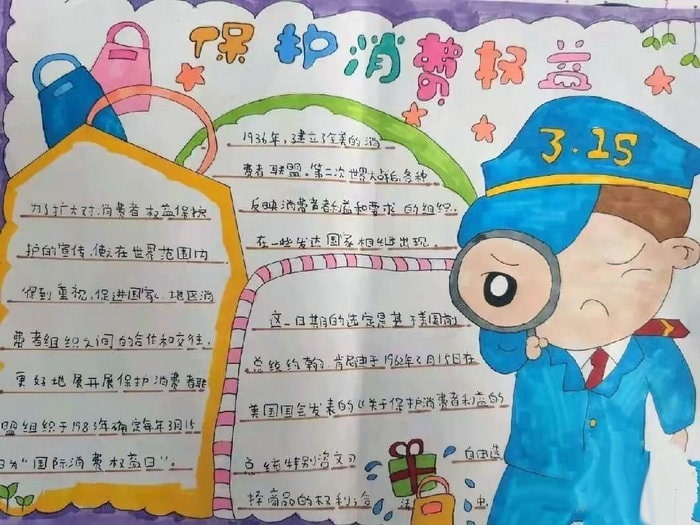 保护消费权益
3.15
1936年,建立了全美的消
费者联盟。第二次世界大战后,各种
反映消费者利益和要求的组织,
在一些发达国家相继出现。
为了扩大对消费者权益保
护的宣传,使之在世界范围内
得到重视,促进国家、地区消
费者组织之间的合作和交往,
更好地展开展保护消费者
盟组织于1983年确定每年3月15
日为“国际消费权益日”。
这一日期的选定是基于美国前
总统约翰·肯尼迪于1962年3月15日在
美国国会发表的《关于保护消费者利益的
总统特别咨文》
自由选
择商品的权利;合 法 虫